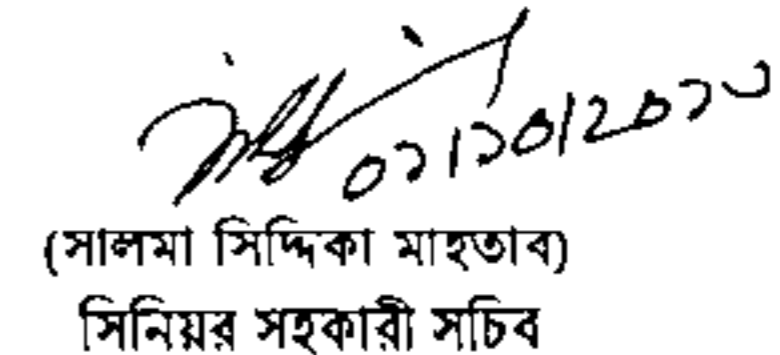 ০১/১০/২০১৩
(সালমা সিদ্দিকা মাহতাব)
সিনিয়র সহকারী সচিব